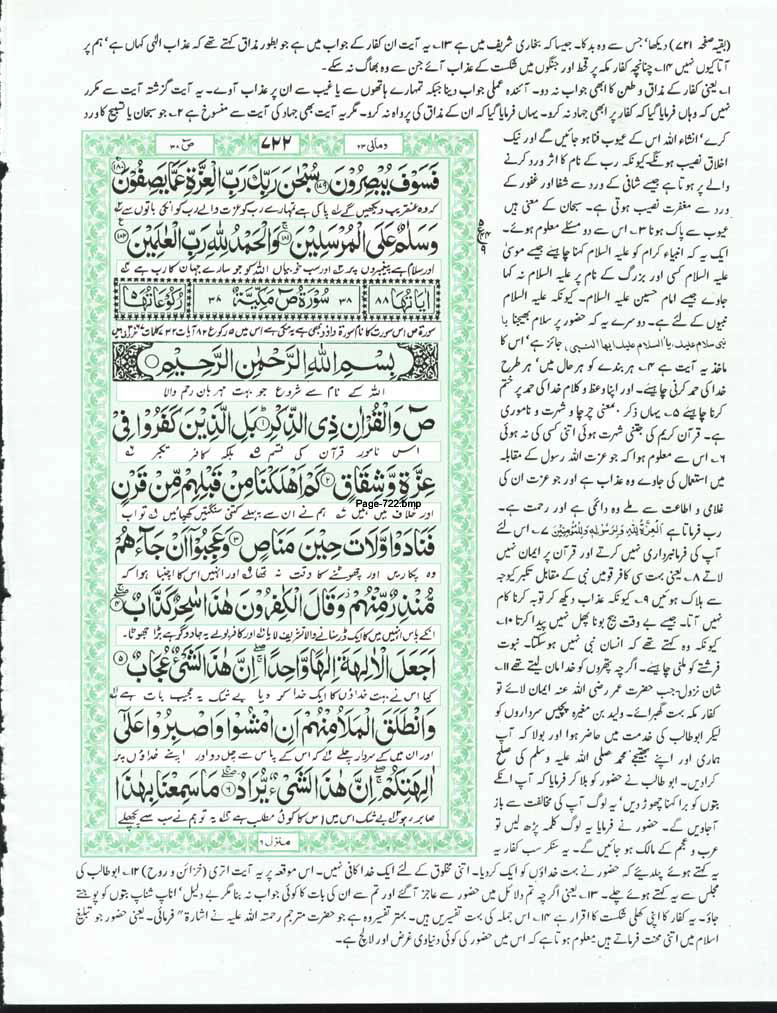 (بقیہ صفحہ ۷۲۱) دیکھا، جس سے وہ بدکا۔ جیسا کہ بخاری شریف میں ہے ۱۳۔ یہ آیت ان کفار کے جواب میں ہے جو بطور مذاق کہتے تھے کہ عذاب الٰہی کہاں ہے، ہم پر
آتا کیوں نہیں ۱۴۔ چنانچہ کفار مکہ پر قحط اور جنگوں میں شکست کے عذاب آئے جن سے وہ بھاگ نہ سکے۔
۱۔ یعنی کفار کے مذاق و طعن کا ابھی جواب نہ دو۔ آئندہ عملی جواب دینا جبکہ تمہارے ہاتھوں سے یا غیب سے ان پر عذاب آوے۔ یہ آیت گزشتہ آیت سے مکرر
نہیں کہ وہاں فرمایا گیا کہ کفار پر ابھی جہاد نہ کرو۔ یہاں فرمایا گیا کہ ان کے مذاق کی پرواہ نہ کرو۔ مگر یہ آیت بھی جہاد کی آیت سے منسوخ ہے ۲۔ جو سبحان یا تسبیح کا ورد
کرے، انشاء اللہ اس کے عیوب فنا ہو جائیں گے اور نیک
اخلاق نصیب ہونگے۔ کیونکہ رب کے نام کا اثر ورد کرنے
والے پر ہوتا ہے جیسے شافی کے ورد سے شفا اور غفور کے
ورد سے مغفرت نصیب ہوتی ہے۔ سبحان کے معنی ہیں
عیوب سے پاک ہونا ۳۔ اس سے دو مسئلے معلوم ہوئے۔
ایک یہ کہ انبیاء کرام کو علیہ السلام کہنا چاہیئے جیسے موسیٰ
علیہ السلام کسی اور بزرگ کے نام پر علیہ السلام نہ کہا
جاوے جیسے امام حسین علیہ السلام۔ کیونکہ علیہ السلام
نبیوں کے لئے ہے۔ دوسرے یہ کہ حضور پر سلام بھیجنا یا
نبی سلام علیک، یا، السلام علیک ایہا النبی، جائز ہے، اس کا
ماخذ یہ آیت ہے ۴۔ ہر بندے کو ہر حال میں، ہر طرح
خدا کی حمد کرنی چاہیئے۔ اور اپنا وعظ و کلام خدا کی حمد پر ختم
کرنا چاہیئے ۵۔ یہاں ذکر، بمعنی چرچا و شہرت و ناموری
ہے۔ قرآن کریم کی جتنی شہرت ہوئی اتنی کسی کی نہ ہوئی
۶۔ اس سے معلوم ہوا کہ جو عزت اللہ رسول کے مقابلہ
میں استعمال کی جاوے وہ عذاب ہے اور جو عزت ان کی
غلامی و اطاعت سے ملے وہ دائمی ہے اور رحمت ہے۔
رب فرماتا ہے اَلْعِزَّةُ لِلّٰهِ وَلِرَسُوْلِهٖ وَلِلْمُؤْمِنِيْنَ ۷۔ اس لئے
آپ کی فرمانبرداری نہیں کرتے اور قرآن پر ایمان نہیں
لاتے ۸۔ یعنی بہت سی کافر قومیں نبی کے مقابل تکبر کیوجہ
سے ہلاک ہوئیں ۹۔ کیونکہ عذاب دیکھ کر توبہ کرنا کام
نہیں آتا۔ جیسے بے وقت بیج بونا پھل نہیں پیدا کرتا ۱۰۔
کیونکہ وہ کہتے تھے کہ انسان نبی نہیں ہو سکتا۔ نبوت
فرشتے کو ملنی چاہیئے۔ اگرچہ پتھروں کو خدا مان لیتے تھے ۱۱۔
شان نزول۔ جب حضرت عمر رضی اللہ عنہ ایمان لائے تو
کفار مکہ بہت گھبرائے۔ ولید بن مغیرہ پچیس سرداروں کو
لیکر ابوطالب کی خدمت میں حاضر ہوا اور بولا کہ آپ
ہماری اور اپنے بھتیجے محمد صلی اللہ علیہ وسلم کی صلح
کرا دیں۔ ابو طالب نے حضور کو بلا کر فرمایا کہ آپ انکے
بتوں کو برا کہنا چھوڑ دیں، یہ لوگ آپ کی مخالفت سے باز
آ جاویں گے۔ حضور نے فرمایا یہ لوگ کلمہ پڑھ لیں تو
عرب و عجم کے مالک ہو جائیں گے۔ یہ سنکر سب کفار یہ
ومالی ۲۳
۷۲۲
صٓ ۳۸
فَسَوْفَ يُبْصِرُوْنَ ۝۱۷۹ سُبْحٰنَ رَبِّكَ رَبِّ الْعِزَّةِ عَمَّا يَصِفُوْنَ ۝۱۸۰
کہ وہ عنقریب دیکھیں گے پاکی ہے تمہارے رب کو عزت والے رب کو انکی باتوں سے
وَسَلٰمٌ عَلَى الْمُرْسَلِيْنَ ۝۱۸۱ وَالْحَمْدُ لِلّٰهِ رَبِّ الْعٰلَمِيْنَ ۝۱۸۲
اور سلام ہے پیغمبروں پر اور سب خوبیاں اللہ کو جو سارے جہان کا رب ہے
اٰيَاتُهَا ۸۸ ۳۸ سُوْرَةُ صٓ مَكِّيَّةٌ ۳۸ رُكُوْعَاتُهَا ۵
بِسْمِ اللّٰهِ الرَّحْمٰنِ الرَّحِيْمِ
اللہ کے نام سے شروع جو بہت مہربان رحم والا
صٓ وَالْقُرْاٰنِ ذِي الذِّكْرِ ۝۱ بَلِ الَّذِيْنَ كَفَرُوْا فِيْ
اس نامور قرآن کی قسم بلکہ کافر تکبر
عِزَّةٍ وَّشِقَاقٍ ۝۲ كَمْ اَهْلَكْنَا مِنْ قَبْلِهِمْ مِّنْ قَرْنٍ
Page-722.bmp
اور خلاف میں ہیں ہم نے ان سے پہلے کتنی سنگتیں کھپائیں تو اب
فَنَادَوْا وَّلَاتَ حِيْنَ مَنَاصٍ ۝۳ وَعَجِبُوْٓا اَنْ جَآءَهُمْ
وہ پکاریں اور چھوٹنے کا وقت نہ تھا اور انہیں اس کا اچنبا ہوا کہ
مُّنْذِرٌ مِّنْهُمْ وَقَالَ الْكٰفِرُوْنَ هٰذَا سٰحِرٌ كَذَّابٌ ۝۴
انکے پاس انہیں میں کا ایک ڈر سنانے والا تشریف لایا اور کافر بولے یہ جادوگر ہے بڑا جھوٹا۔
اَجَعَلَ الْاٰلِهَةَ اِلٰهًا وَّاحِدًا اِنَّ هٰذَا لَشَيْءٌ عُجَابٌ ۝۵
کیا اس نے بہت خداؤں کا ایک خدا کر دیا بے شک یہ عجیب بات ہے
وَانْطَلَقَ الْمَلَاُ مِنْهُمْ اَنِ امْشُوْا وَاصْبِرُوْا عَلٰٓى
اور ان میں کے سردار چلے کہ اس کے پاس سے چل دو اور اپنے خداؤں پر
اٰلِهَتِكُمْ اِنَّ هٰذَا لَشَيْءٌ يُّرَادُ ۝۶ مَا سَمِعْنَا بِهٰذَا
صابر رہو بے شک اس میں اس کا کوئی مطلب ہے یہ تو ہم نے سب سے پچھلے
منزل ۶
یہ کہتے ہوئے چلدیئے کہ حضور نے بہت خداؤں کو ایک کر دیا۔ اتنی مخلوق کے لئے ایک خدا کافی نہیں۔ اس موقعہ پر یہ آیت اتری (خزائن و روح) ۱۲۔ ابوطالب کی
مجلس سے یہ کہتے ہوئے چلے۔ ۱۳۔ یعنی اگرچہ تم دلائل میں حضور سے عاجز آ گئے اور تم سے ان کی بات کا کوئی جواب نہ بنا مگر بے دلیل، اناپ شناپ بتوں کو پوجتے
جاؤ۔ یہ کفار کا اپنی کھلی شکست کا اقرار ہے ۱۴۔ اس جملہ کی بہت تفسیریں ہیں۔ بہتر تفسیر وہ ہے جو حضرت مترجم رحمتہ اللہ علیہ نے اشارۃً فرمائی۔ یعنی حضور جو تبلیغ
اسلام میں اتنی محنت فرماتے ہیں معلوم ہوتا ہے کہ اس میں حضور کی کوئی دنیاوی غرض اور لالچ ہے۔